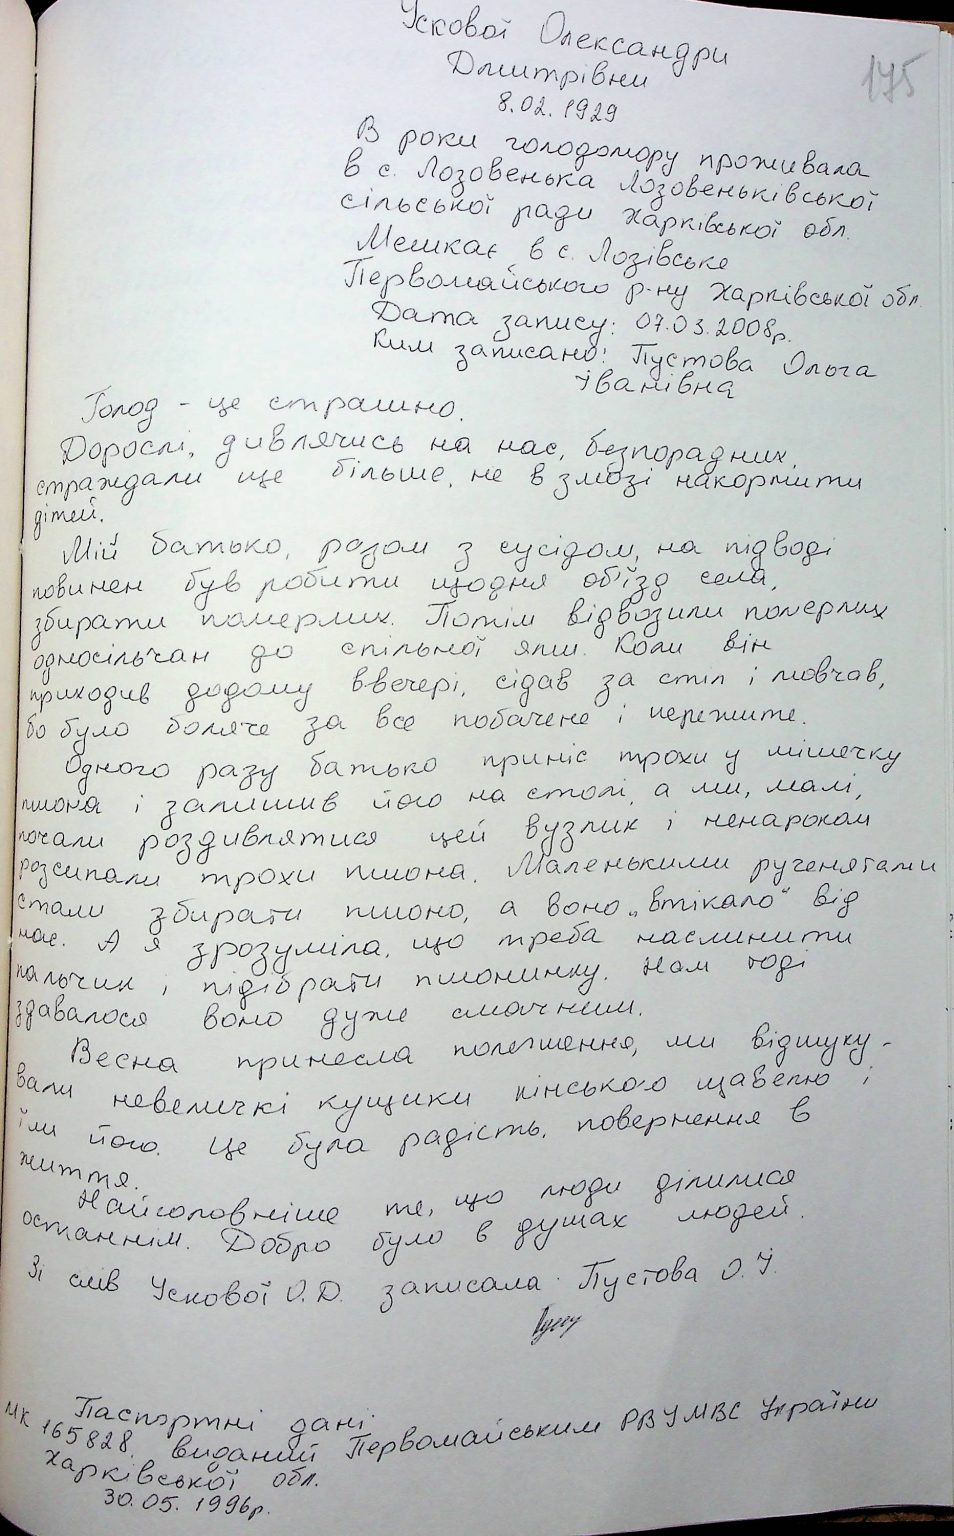 Ускової Олександри
Дмитрівни
175
8.02.1929
В роки голодомору проживала
в с. Лозовенька Лозовеньківської
сільської ради Харківської обл.
Мешкає в с. Лозівське
Первомайського р-ну Харківської обл.
Дата запису: 07.03.2008р.
Ким записано: Пустова Ольга
Іванівна
Голод - це страшно.
Дорослі, дивлячись на нас, безпорадних,
страждали ще більше, не в змозі накормити
дітей.
Мій батько, разом з сусідом, на підводі
повинен був робити щодня об'їзд села,
збирати померлих. Потім відвозили померлих
односільчан до спільної ями. Коли він
приходив додому ввечері, сідав за стіл і мовчав,
бо було боляче за все побачене і пережите.
Одного разу батько приніс трохи у мішечку
пшона і залишив його на столі, а ми, малі,
почали роздивлятися цей вузлик і ненароком
розсипали трохи пшона. Маленькими рученятами
стали збирати пшоно, а воно „втікало" від
нас. А я зрозуміла, що треба наслинити
пальчик і підібрати пшонинку. Нам тоді
здавалося воно дуже смачним.
Весна принесла полегшення, ми відшуку-
вали невеличкі кущики кінського щавелю і
їли його. Це була радість, повернення в
життя.
Найголовніше те, що люди ділилися
останнім. Добро було в душах людей.
Зі слів Ускової О.Д. записала Пустова О.І.
Паспортні дані:
МК 165828, виданий Первомайським РВУМВС України
Харківської обл.
30.05.1996р.